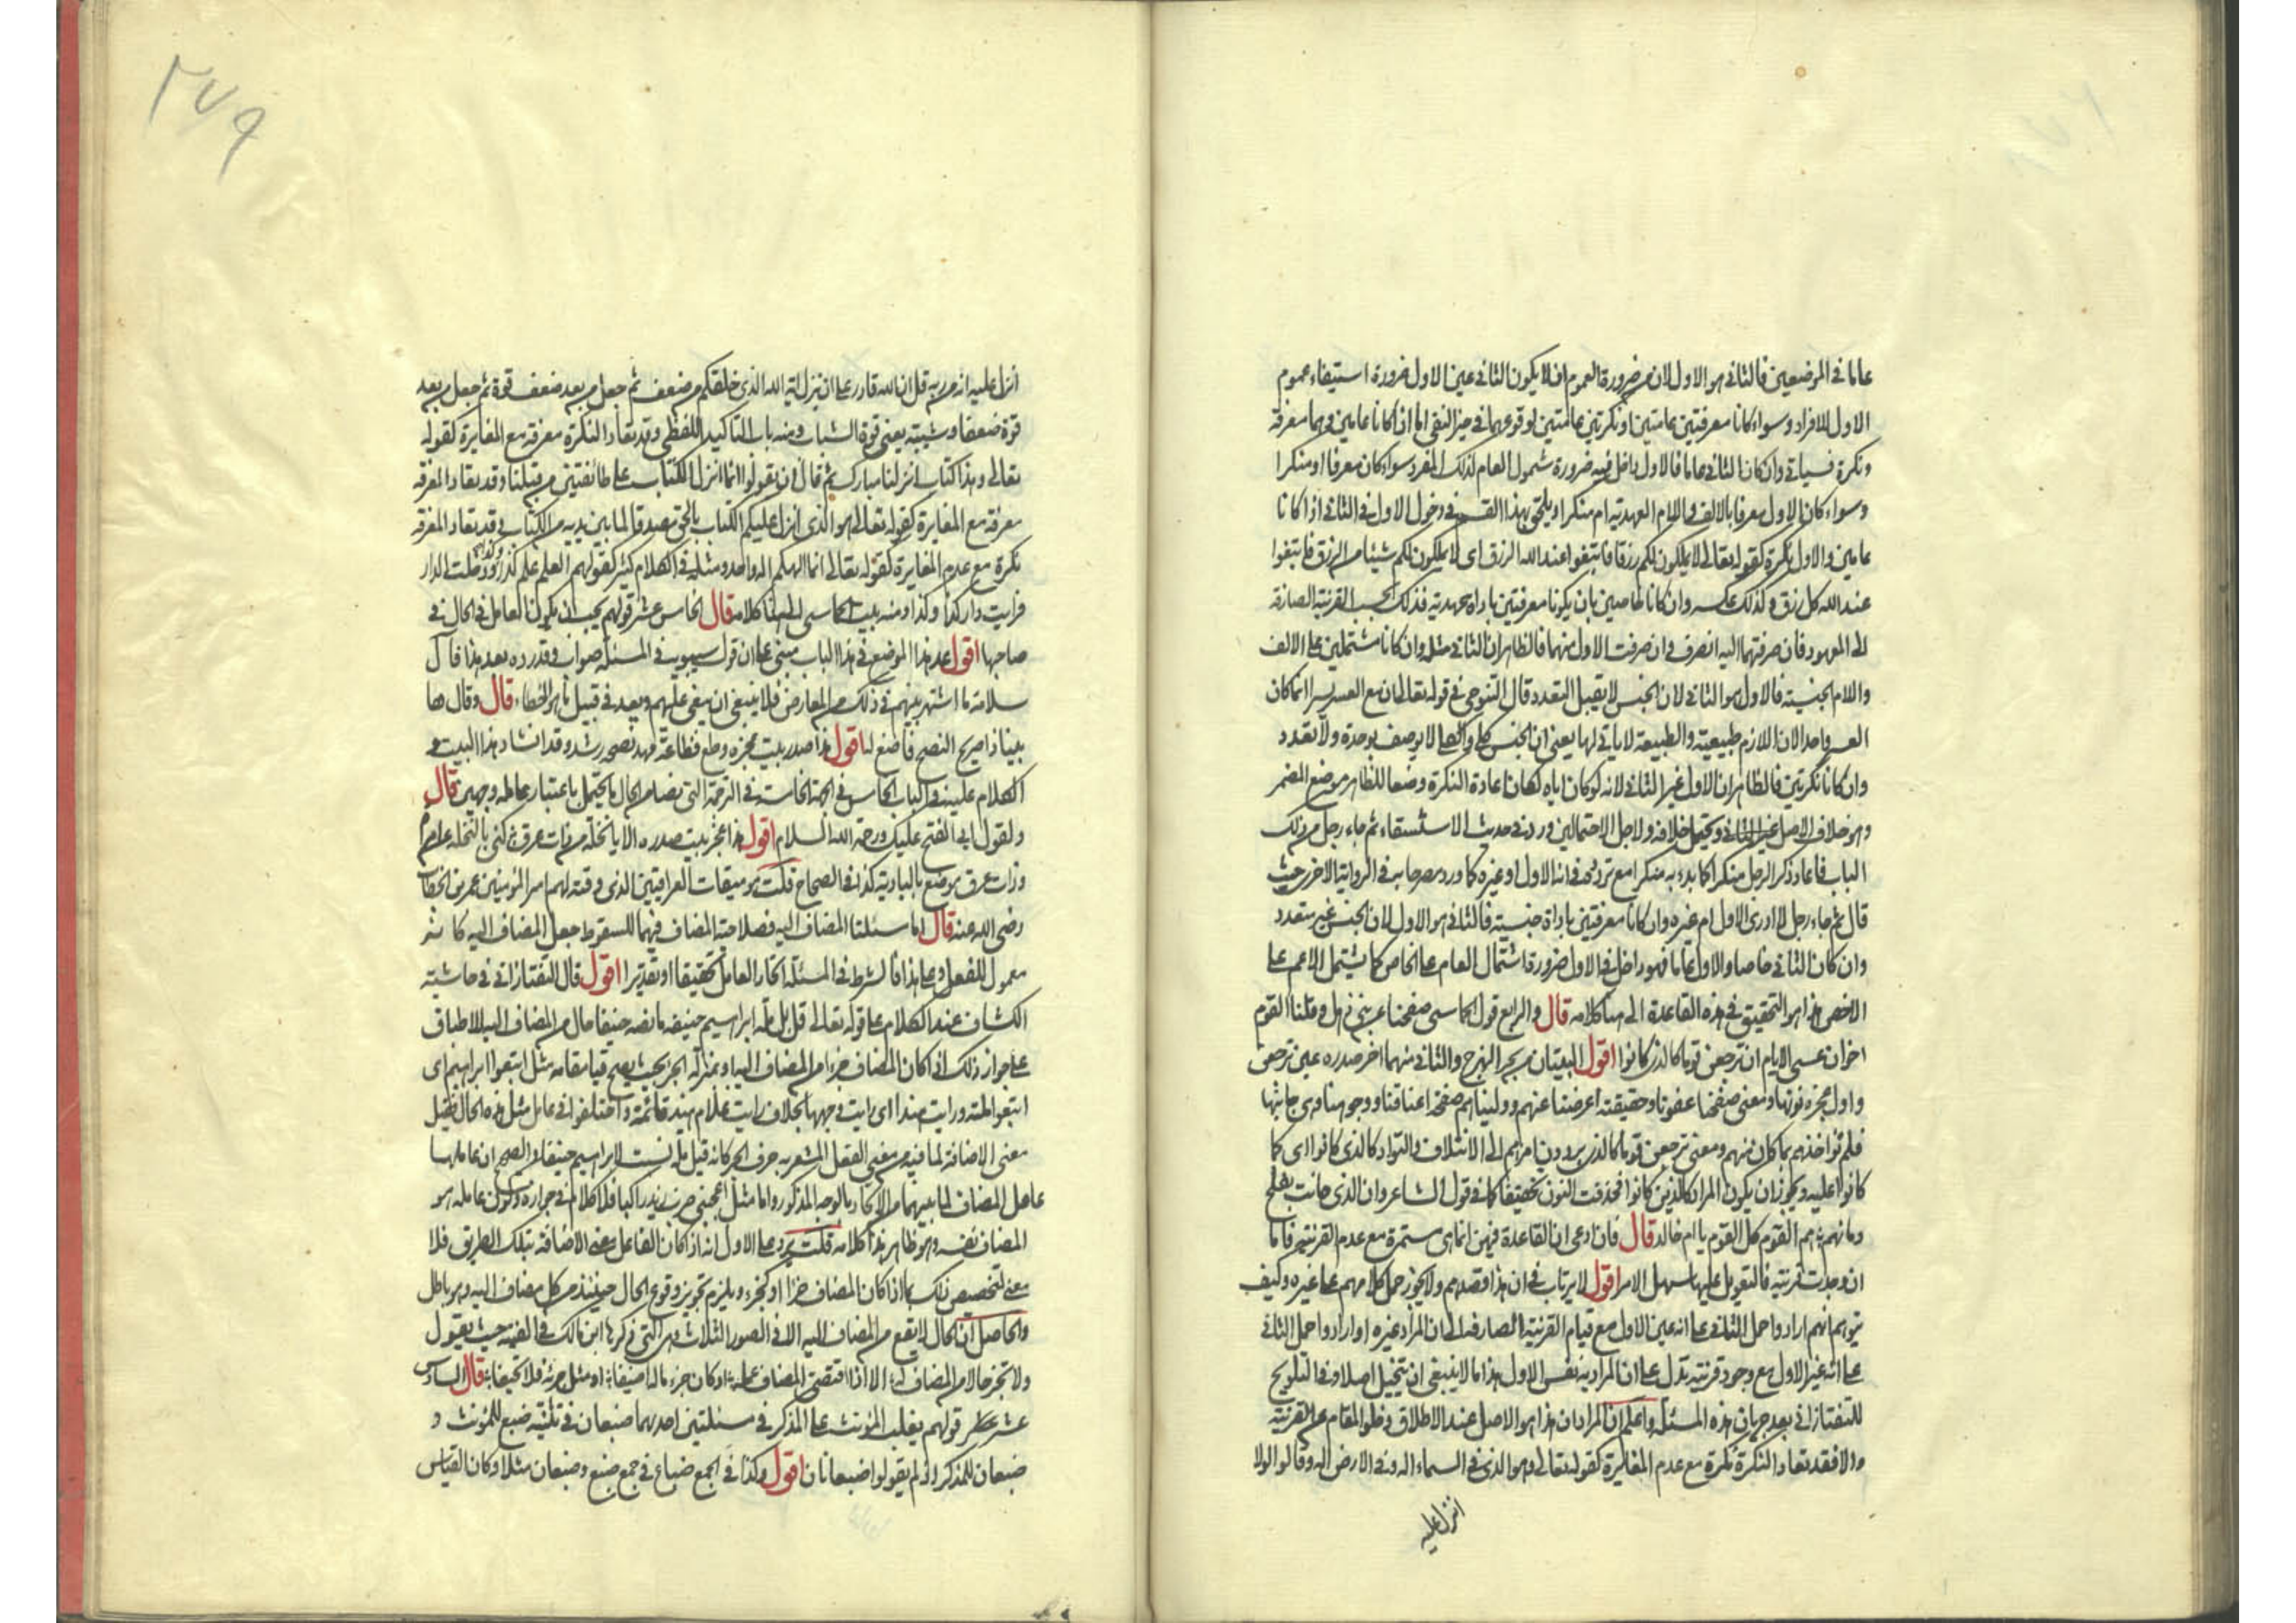 عاما في الموضعين فالثاني هو الاول لان من ضرورة العموم ان لا يكون الثاني عين الاول ضرورة استيفاء عموم
الاول للافراد وسواء كانا معرفتين عامتين او نكرتين عامتين لوقوعهما في حيز النفي اما ان كانا عامين وهما معرفة
ونكرة فسياتي وان كان الثاني عاما فالاول داخل فيه ضرورة شمول العام لذلك المفرد سواء كان معرفا او منكرا
وسواء كان الاول معرفا بالالف واللام العهدية ام منكرا ويلحق بهذا القسم في دخول الاول في الثاني اذا كانا
عامين والاول نكرة كقوله تعالى لا يملكون لكم رزقا فابتغوا عند الله الرزق اى لا يملكون لكم شيئا من الرزق فابتغوا
عند الله كل رزق وكذلك عكسه وان كانا خاصين بان يكونا معرفتين باداة عهدية فذلك بحسب القرينة الصارفة
الى المعهود فان صرفتهما اليه انصرف وان صرفت الاول منهما فالظاهر ان الثاني مثله وان كانا مشتملين على الالف
واللام الجنسية فالاول هو الثاني لان الجنس لا يقبل التعدد قال التنوخي في قوله تعالى ان مع العسر يسرا انما كان
العسر واحدا لان اللازم طبيعية والطبيعة لا ياتي لها يعني ان الجنس كلي والكلي لا يوصف بوحدة ولا تعدد
وان كانا نكرتين فالظاهر ان الاول غير الثاني لانه لو كان اياه لكان اعادة النكرة وضعا للظاهر موضع المضمر
وهو خلاف الاصل ويحتمل خلافه ولاجل الاحتمالين ورد في حديث الاستسقاء ثم جاء رجل من ذلك
الباب فاعاد ذكر الرجل منكرا كما بدء به منكرا مع تردده في انه الاول او غيره كما ورد مصرحا به في الرواية الاخرى حيث
قال ثم جاء رجل لا ادري الاول ام غيره وان كانا معرفتين باداة جنسية فالثاني هو الاول لان الجنس غير متعدد
وان كان الثاني خاصا والاول عاما فهو داخل في الاول ضرورة اشتمال العام على الخاص كما يشتمل الاعم على
الاخص هذا هو التحقيق في هذه القاعدة الى هنا كلامه قال والرابع قول الحماسي صفحنا عن بني ذهل وقلنا القوم
اخوان عسى الايام ان ترجعن قوما كالذي كانوا اقول البيتان من بحر الهزج والثاني منهما اخر صدره عين ترجعن
واول عجزه نونها ومعنى صفحنا عفونا وحقيقته اعرضنا عنهم ووليناهم صفحة اعناقنا ووجوهنا وهي جانبها
فلم نؤاخذهم بما كان منهم ومعنى ترجعن قوما كالذي يردون امرهم الى الائتلاف والتواد كالذي كانوا اى كما
كانوا عليه ويجوز ان يكون المراد كالذين كانوا فحذفت النون تخفيفا كما في قول الشاعر وان الذي حانت بفلج
دماؤهم هم القوم كل القوم يا ام خالد قال فان ادعى ان القاعدة فيهن انما هي مستمرة مع عدم القرينة فاما
ان وجدت قرينة فالتعويل عليها سهل الامر اقول لا يرتاب في ان هذا قصدهم ولا يجوز حمل كلامهم على غيره وكيف
يتوهم انهم ارادوا حمل الثاني على انه عين الاول مع قيام القرينة الصارفة الى ان المراد غيره او ارادوا حمل الثاني
على انه غير الاول مع وجود قرينة تدل على ان المراد به نفس الاول هذا ما لا ينبغي ان يتخيل اصلا وفي التلويح
للتفتازاني بعد جريان هذه المسئلة واعلم ان المراد ان هذا هو الاصل عند الاطلاق وخلو المقام عن القرينة
والا فقد تعاد النكرة نكرة مع عدم المغايرة كقوله تعالى وهو الذي في السماء اله وفي الارض اله وقالوا لولا
انزل عليه
٢٧٩
انزل عليه اية من ربه قل ان الله قادر على ان ينزل اية الله الذي خلقكم من ضعف ثم جعل من بعد ضعف قوة ثم جعل من بعد
قوة ضعفا وشيبة يعني قوة الشباب ومنه باب التاكيد اللفظي وقد تعاد النكرة معرفة مع المغايرة كقوله
تعالى وهذا كتاب انزلناه مبارك ثم قال ان تقولوا انما انزل الكتاب على طائفتين من قبلنا وقد تعاد المعرفة
معرفة مع المغايرة كقوله تعالى هو الذي انزل عليكم الكتاب بالحق مصدقا لما بين يديه من الكتاب وقد تعاد المعرفة
نكرة مع عدم المغايرة كقوله تعالى انما الهكم اله واحد ومثله في الكلام كثير كقولهم العلم علم كذا ودخلت الدار
فرايت دارا كذا وكذا ومنه بيت الحماسي الى هنا كلامه قال الخامس عشر قولهم يجب ان يكون العامل في الحال في
صاحبها اقول عد هذا الموضع في هذا الباب مبني على ان قول سيبويه في المسئلة صواب وقد رده بعد هذا قال
سلامة ما اشتهر بينهم في ذلك من المعارض فلا ينبغي ان ينعى عليهم ويعد في قبيل ما هو الخطاء قال وقال ها
بينا ذا صريح النصح فاصغ له اقول هذا صدر بيت عجزه وطع فطاعة مهد نصحه رشد وقد انشاد هذا البيت و
الكلام عليه في الباب الخامس في الجهة الخامسة في الترجمة التي بعضها من الحال ما يحتمل باعتبار عامله وجهين قال
ولقول ابي الفتح عليك ورحمة الله السلام اقول هذا عجز بيت صدره الا يا نخلة من ذات عرق كنى بالنخلة عن امراة
وذات عرق موضع بالبادية كذا في الصحاح قلت هو ميقات العراقيين الذي وقته لهم امير المؤمنين عمر بن الخطاب
رضى الله عنه قال اما مسئلتا المضاف اليه فصلاحية المضاف فيهما للسقوط جعل المضاف اليه كانه
معمول للفعل وعلى هذا فالشرط في المسئلة اتحاد العامل تحقيقا او تقديرا اقول قال التفتازاني في حاشية
الكشاف عند الكلام على قوله تعالى قل بل ملة ابراهيم حنيفا ما نصه حنيفا حال من المضاف اليه للاطباق
على جواز ذلك اذا كان المضاف جزءا من المضاف اليه او بمنزلة الجزء بحيث يصح قيامه مقامه مثل اتبعوا ابراهيم اى
اتبعوا ملته ورايت هندا اى رايت وجهها بخلاف رايت غلام هند قائمة واختلفوا في عامل مثل هذه الحال فقيل
معنى الاضافة لما فيه من معنى الفعل المشعر به حرف الجر كانه قيل ملة نسبت لابراهيم حنيفا والصحيح ان عاملها
عامل المضاف لما بينهما من الاتحاد بالوجه المذكور واما مثل اعجبني ضرب زيد راكبا فلا كلام في جوازه وكون عامله هو
المضاف نفسه وهو ظاهر هذا كلامه قلت يرد على الاول انه اذا كان الفاعل معنى الاضافة بتلك الطريق فلا
معنى لتخصيص ذلك بما اذا كان المضاف جزءا او كجزء ويلزم تجويز وقوع الحال حينئذ من كل مضاف اليه وهو باطل
والحاصل ان الحال لا يقع من المضاف اليه الا في الصور الثلاث وهي التي ذكرها ابن مالك في الفيته حيث يقول
ولا تجز حالا من المضاف له الا اذا اقتضى المضاف عمله او كان جزء ما له اضيفا او مثل جزئه فلا تحيفا قال السادس
عشر قولهم يغلب المؤنث على المذكر في مسئلتين احدهما ضبعان في تثنية ضبع للمؤنث و
ضبعان للمذكر اذ لم يقولوا ضبعانان اقول وكذا في الجمع ضباع في جمع ضبع وضبعان مثلا وكان القياس